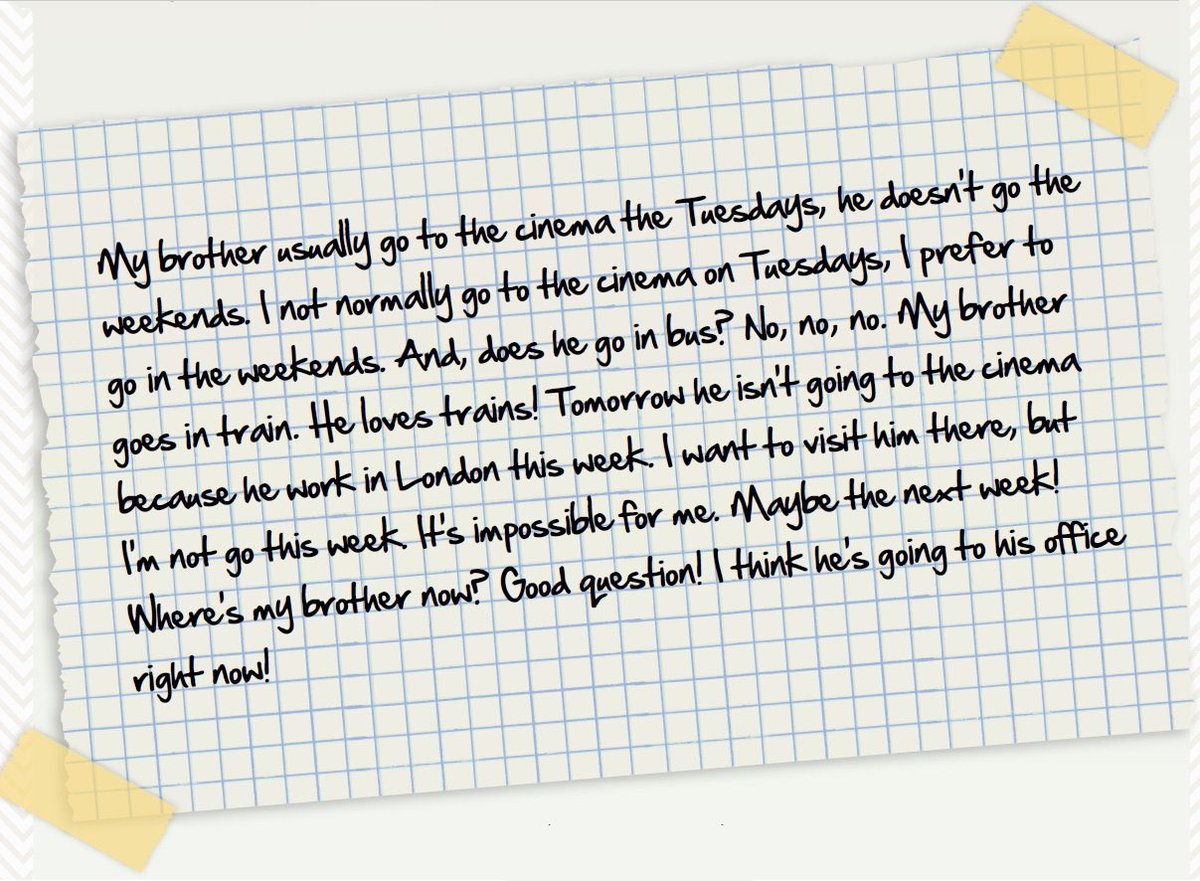 My brother usually go to the cinema the Tuesdays, he doesn't go the
weekends. I not normally go to the cinema on Tuesdays, I prefer to
go in the weekends. And, does he go in bus? No, no, no. My brother
goes in train. He loves trains! Tomorrow he isn't going to the cinema
because he work in London this week. I want to visit him there, but
I'm not go this week. It's impossible for me. Maybe the next week!
Where's my brother now? Good question! I think he's going to his office
right now!